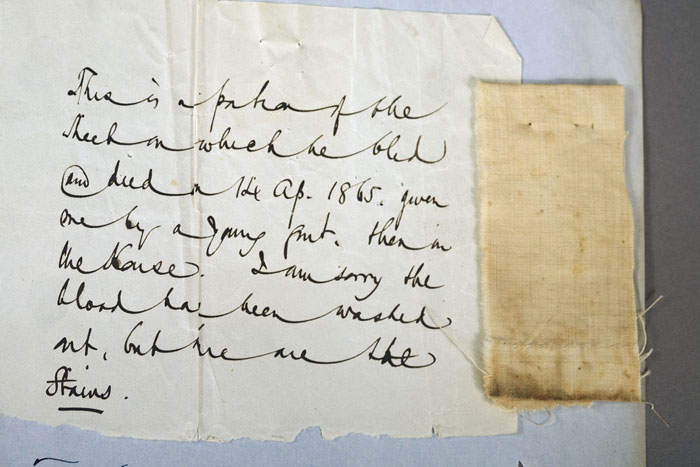 This is a portion of the
sheet on which he bled
and died on 14 Ap. 1865. given
me by a young gent. then in
the House. I am sorry the
blood has been washed
out, but here are the
Stains.